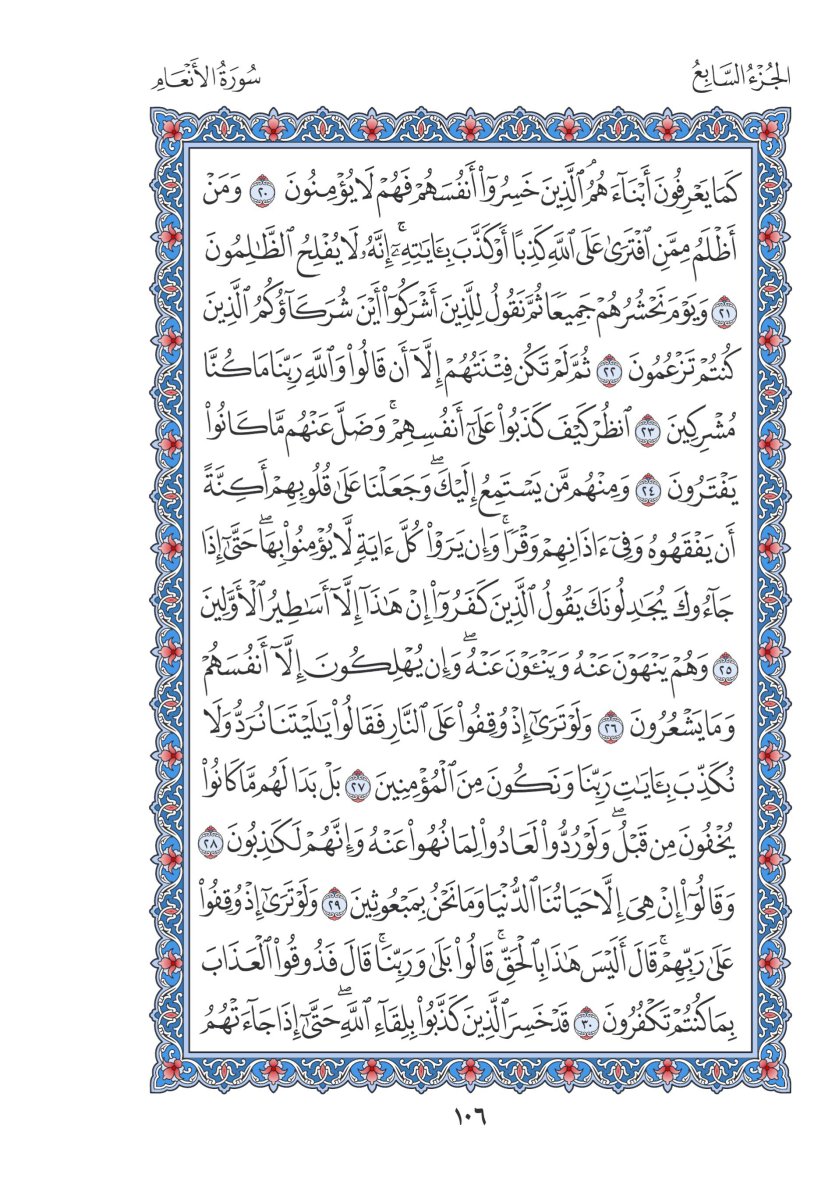 الجُزْءُ السَّابِعُ
سُورَةُ الأَنْعَامِ
كَمَا يَعْرِفُونَ أَبْنَآءَهُمُۘ ٱلَّذِينَ خَسِرُوٓاْ أَنفُسَهُمْ فَهُمْ لَا يُؤْمِنُونَ ٢٠ وَمَنْ
أَظْلَمُ مِمَّنِ ٱفْتَرَىٰ عَلَى ٱللَّهِ كَذِبًا أَوْ كَذَّبَ بِـَٔايَـٰتِهِۦٓۚ إِنَّهُۥ لَا يُفْلِحُ ٱلظَّـٰلِمُونَ
٢١ وَيَوْمَ نَحْشُرُهُمْ جَمِيعًا ثُمَّ نَقُولُ لِلَّذِينَ أَشْرَكُوٓاْ أَيْنَ شُرَكَآؤُكُمُ ٱلَّذِينَ
كُنتُمْ تَزْعُمُونَ ٢٢ ثُمَّ لَمْ تَكُن فِتْنَتُهُمْ إِلَّآ أَن قَالُواْ وَٱللَّهِ رَبِّنَا مَا كُنَّا
مُشْرِكِينَ ٢٣ ٱنظُرْ كَيْفَ كَذَبُواْ عَلَىٰٓ أَنفُسِهِمْۚ وَضَلَّ عَنْهُم مَّا كَانُواْ
يَفْتَرُونَ ٢٤ وَمِنْهُم مَّن يَسْتَمِعُ إِلَيْكَۖ وَجَعَلْنَا عَلَىٰ قُلُوبِهِمْ أَكِنَّةً
أَن يَفْقَهُوهُ وَفِىٓ ءَاذَانِهِمْ وَقْرًاۚ وَإِن يَرَوْاْ كُلَّ ءَايَةٍ لَّا يُؤْمِنُواْ بِهَاۖ حَتَّىٰٓ إِذَا
جَآءُوكَ يُجَـٰدِلُونَكَ يَقُولُ ٱلَّذِينَ كَفَرُوٓاْ إِنْ هَـٰذَآ إِلَّآ أَسَـٰطِيرُ ٱلْأَوَّلِينَ
٢٥ وَهُمْ يَنْهَوْنَ عَنْهُ وَيَنْـَٔوْنَ عَنْهُۖ وَإِن يُهْلِكُونَ إِلَّآ أَنفُسَهُمْ
وَمَا يَشْعُرُونَ ٢٦ وَلَوْ تَرَىٰٓ إِذْ وُقِفُواْ عَلَى ٱلنَّارِ فَقَالُواْ يَـٰلَيْتَنَا نُرَدُّ وَلَا
نُكَذِّبَ بِـَٔايَـٰتِ رَبِّنَا وَنَكُونَ مِنَ ٱلْمُؤْمِنِينَ ٢٧ بَلْ بَدَا لَهُم مَّا كَانُواْ
يُخْفُونَ مِن قَبْلُۖ وَلَوْ رُدُّواْ لَعَادُواْ لِمَا نُهُواْ عَنْهُ وَإِنَّهُمْ لَكَـٰذِبُونَ ٢٨
وَقَالُوٓاْ إِنْ هِىَ إِلَّا حَيَاتُنَا ٱلدُّنْيَا وَمَا نَحْنُ بِمَبْعُوثِينَ ٢٩ وَلَوْ تَرَىٰٓ إِذْ وُقِفُواْ
عَلَىٰ رَبِّهِمْۚ قَالَ أَلَيْسَ هَـٰذَا بِٱلْحَقِّۚ قَالُواْ بَلَىٰ وَرَبِّنَاۚ قَالَ فَذُوقُواْ ٱلْعَذَابَ
بِمَا كُنتُمْ تَكْفُرُونَ ٣٠ قَدْ خَسِرَ ٱلَّذِينَ كَذَّبُواْ بِلِقَآءِ ٱللَّهِۖ حَتَّىٰٓ إِذَا جَآءَتْهُمُ
١٠٦